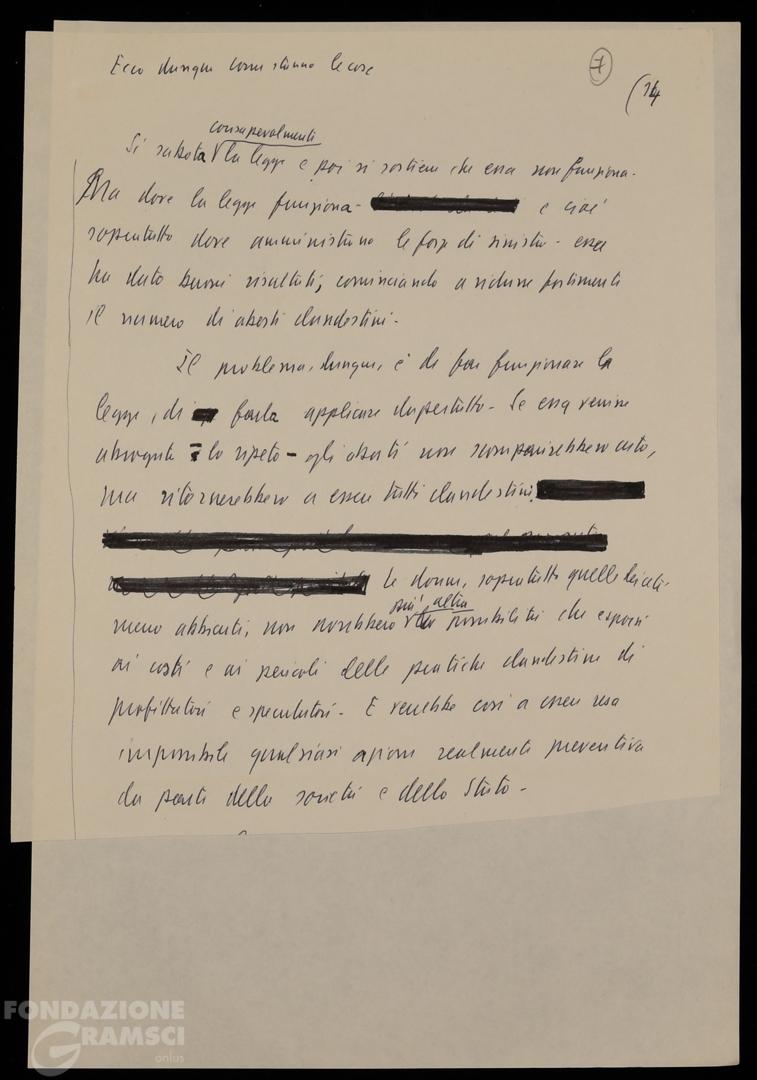 Ecco dunque come stanno le cose
7
(14
consapevolmente
Si sabota la legge e poi si sostiene che essa non funziona.
Ma dove la legge funziona - e cioè
soprattutto dove amministrano le forze di sinistra - essa
ha dato buoni risultati, cominciando a ridurre fortemente
il numero di aborti clandestini.
Il problema, dunque, è di far funzionare la
legge, di farla applicare dappertutto. Se essa venisse
abrogata - lo ripeto - gli aborti non scomparirebbero certo,
ma ritornerebbero a essere tutti clandestini.
Le donne, soprattutto quelle dei ceti
più altra
meno abbienti, non avrebbero possibilità che esporsi
ai costi e ai pericoli delle pratiche clandestine di
profittatori e speculatori. E verrebbe così a essere resa
impossibile qualsiasi azione realmente preventiva
da parte della società e dello Stato.
FONDAZIONE
GRAMSCI
onlus